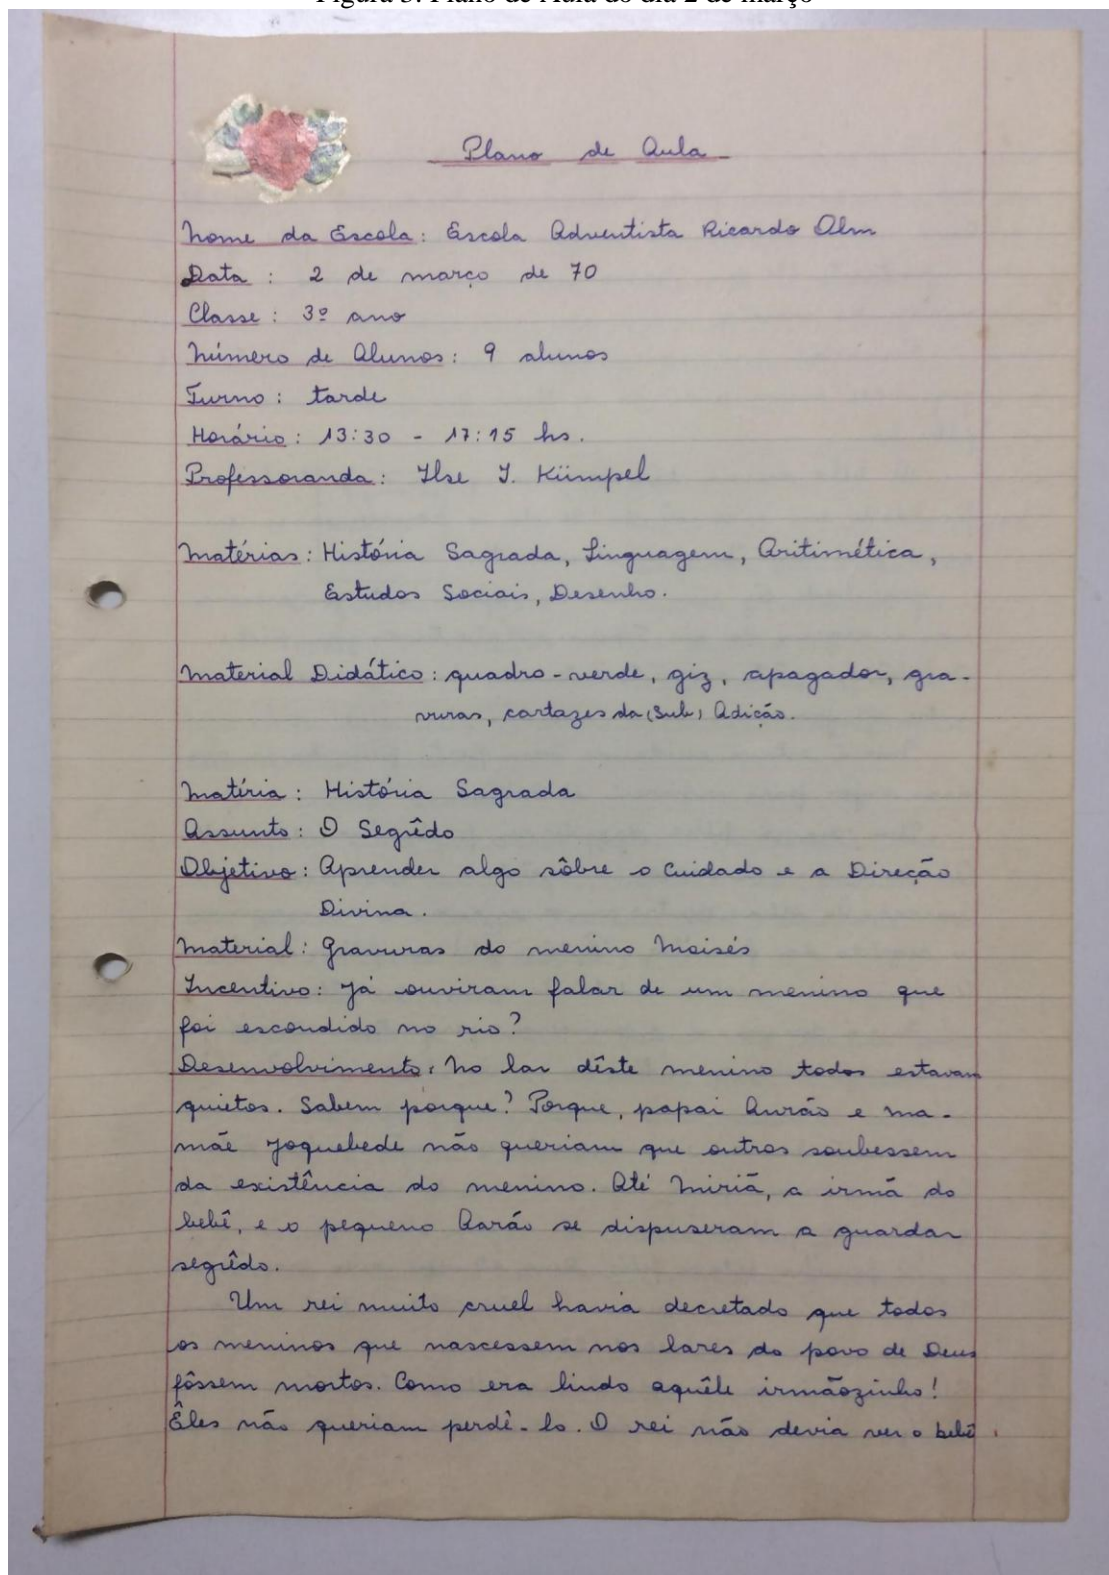 Figura 3: Plano de Aula do dia 2 de março
Plano de Aula
Nome da Escola: Escola Adventista Ricardo Olm
Data: 2 de março de 70
Classe: 3º ano
Número de Alunos: 9 alunos
Turno: tarde
Horário: 13:30 - 17:15 hs.
Professoranda: Ilse I. Kümpel
Matérias: História Sagrada, Linguagem, Aritimética,
Estudos Sociais, Desenho.
Material Didático: quadro-verde, giz, apagador, gra-
vuras, cartazes da (Sub) Adição.
Matéria: História Sagrada
Assunto: O Segrêdo
Objetivo: Aprender algo sôbre o Cuidado e a Direção
Divina.
Material: Gravuras do menino Moisés
Incentivo: Já ouviram falar de um menino que
foi escondido no rio?
Desenvolvimento: No lar dêste menino todos estavam
quietos. Sabem porque? Porque, papai Anrão e ma-
mãe Joquebede não queriam que outros soubessem
da existência do menino. Até Miriã, a irmã do
bebê, e o pequeno Aarão se dispuseram a guardar
segrêdo.
Um rei muito cruel havia decretado que todos
os meninos que nascessem nos lares do povo de Deus
fôssem mortos. Como era lindo aquêle irmãozinho!
Êles não queriam perdê-lo. O rei não devia ver o bebê.